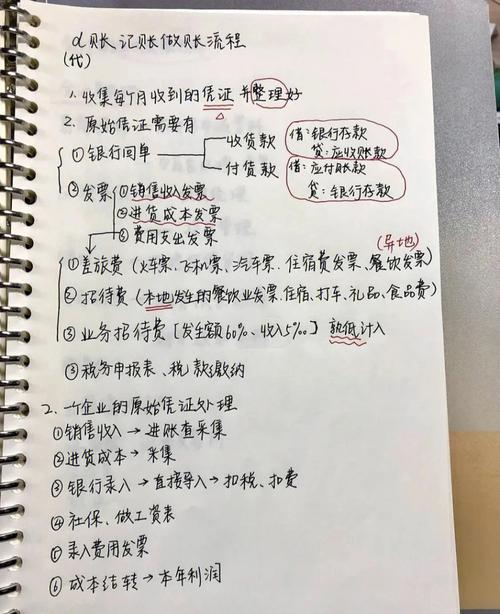 d账记账做账流程
(代)
1. 收集每个月收到的凭证并整理好
2. 原始凭证需要有
①银行回单 收货款 借:银行存款
贷:应收账款
付货款 借:应付账款
贷:银行存款
②发票 ①销售收入发票
②进货成本发票
③费用支出发票
(异地)
①差旅费(火车票、飞机票、汽车票、住宿费发票、餐饮发票)
②招待费(本地发生的餐饮业发票、住宿、打车、礼品、食品费)
③业务招待费[发生额60%、收入5‰] 孰低计入
③税务申报表、税款缴纳
2、一个企业的原始凭证处理
①销售收入→进账查采集
②进货成本→采集
③银行录入→直接导入→扣税、扣费
④社保、做工资表
⑤录入费用发票
⑥成本结转→本年利润